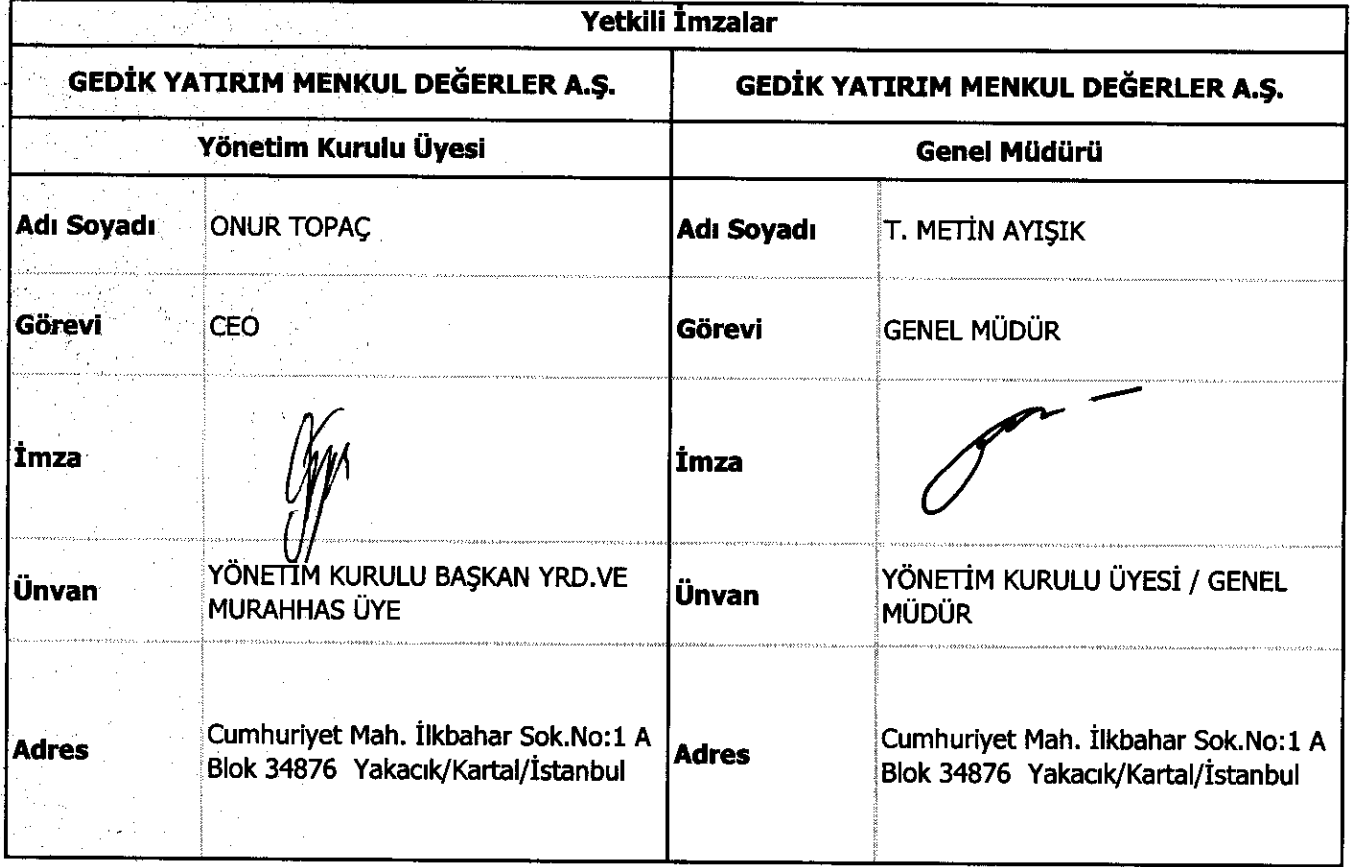 Yetkili İmzalar
GEDİK YATIRIM MENKUL DEĞERLER A.Ş.
GEDİK YATIRIM MENKUL DEĞERLER A.Ş.
Yönetim Kurulu Üyesi
Genel Müdürü
Adı Soyadı
ONUR TOPAÇ
Adı Soyadı
T. METİN AYIŞIK
Görevi
CEO
Görevi
GENEL MÜDÜR
İmza
İmza
Ünvan
YÖNETİM KURULU BAŞKAN YRD.VE
MURAHHAS ÜYE
Ünvan
YÖNETİM KURULU ÜYESİ / GENEL
MÜDÜR
Adres
Cumhuriyet Mah. İlkbahar Sok.No:1 A
Blok 34876 Yakacık/Kartal/İstanbul
Adres
Cumhuriyet Mah. İlkbahar Sok.No:1 A
Blok 34876 Yakacık/Kartal/İstanbul